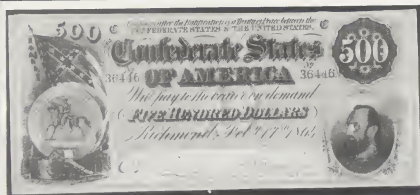 500 C after the Ratification of a Treaty of Peace between the C
CONFEDERATE STATES & THE UNITED STATES,
Confederate States 500
36446 OF AMERICA 36446
Will pay to the bearer on demand
FIVE HUNDRED DOLLARS
Richmond, Feb. 17th 1864